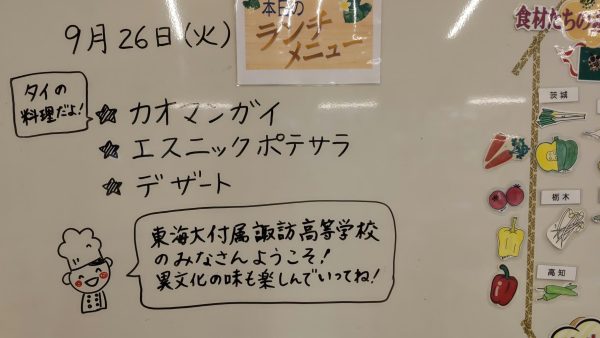 9月26日(火)
本日の
ランチ
メニュー
タイの
料理だよ!
☆ カオマンガイ
☆ エスニックポテサラ
☆ デザート
東海大付属諏訪高等学校
のみなさんようこそ!
異文化の味も楽しんでいってね!
食材たちの
茨城
栃木
高知